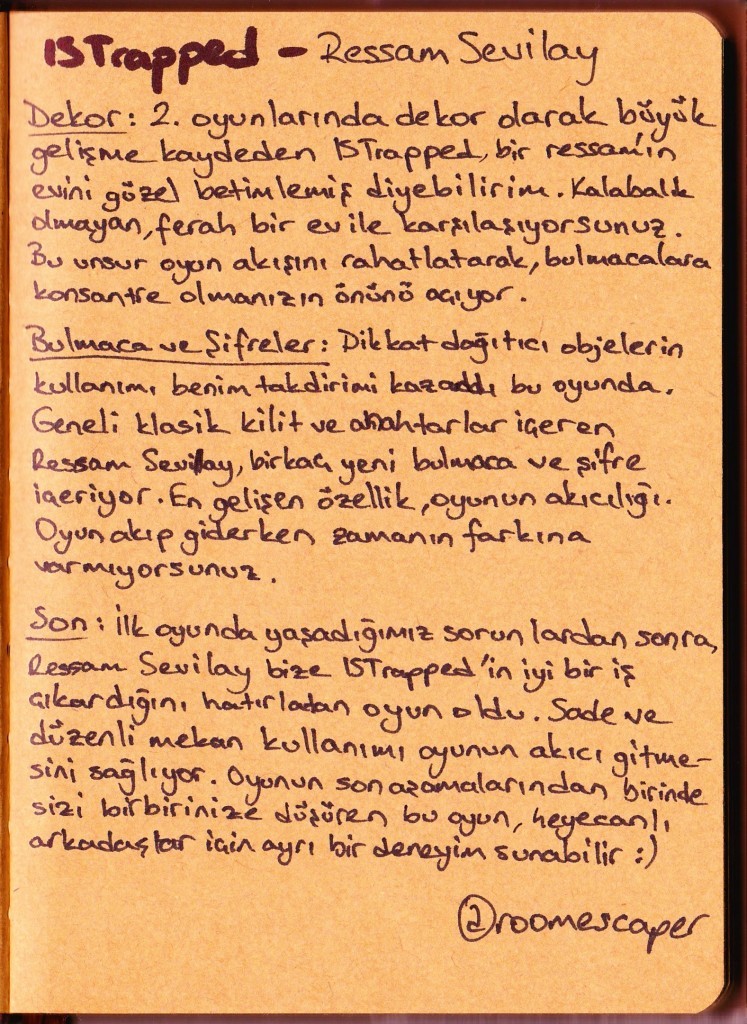 ISTrapped - Ressam Sevilay
Dekor: 2. oyunlarında dekor olarak büyük
gelişme kaydeden ISTrapped, bir ressam'ın
evini güzel betimlemiş diyebilirim. Kalabalık
olmayan, ferah bir ev ile karşılaşıyorsunuz.
Bu unsur oyun akışını rahatlatarak, bulmacalara
konsantre olmanızın önünü açıyor.
Bulmaca ve Şifreler: Dikkat dağıtıcı objelerin
kullanımı benim takdirimi kazandı bu oyunda.
Geneli klasik kilit ve anahtarlar içeren
Ressam Sevilay, birkaç yeni bulmaca ve şifre
içeriyor. En gelişen özellik, oyunun akıcılığı.
Oyun akıp giderken zamanın farkına
varmıyorsunuz.
Son: İlk oyunda yaşadığımız sorunlardan sonra,
Ressam Sevilay bize ISTrapped'in iyi bir iş
çıkardığını hatırlatan oyun oldu. Sade ve
düzenli mekan kullanımı oyunun akıcı gitme-
sini sağlıyor. Oyunun son aşamalarından birinde
sizi birbirinize düşüren bu oyun, heyecanlı
arkadaşlar için ayrı bir deneyim sunabilir :)
@roomescaper